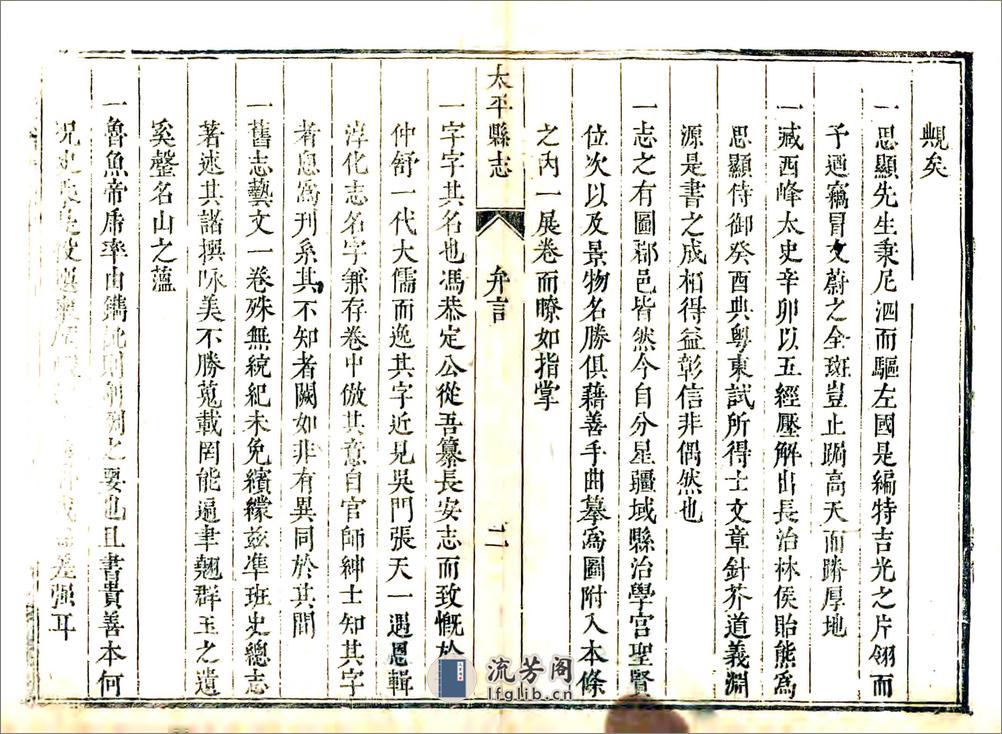 覥矣
一思顯先生秉尼泗而驅左國是編特吉光之片翎而
予迺竊冒文蔚之全斑豈止跼高天而蹐厚地
一臧西峰太史辛卯以五經壓解出長治林侯貽熊爲
思顯侍御癸酉典粵東試所得士文章針芥道義淵
源是書之成相得益彰信非偶然也
一志之有圖郡邑皆然今自分星疆域縣治學宮聖賢
位次以及景物名勝俱藉善手曲摹爲圖附入本條
之內一展卷而瞭如指掌
太平縣志 弁言 二
一字字其名也馮恭定公從吾纂長安志而致慨於
仲舒一代大儒而逸其字近見吳門張天一遇恩輯
淳化志名字兼存卷中倣其意自官師紳士知其字
者悉爲刊系其不知者闕如非有異同於其間
一舊志藝文一卷殊無統紀未免繽䌥茲準班史總志
著述其諸撰咏美不勝蒐載罔能遍聿翹群玉之遺
奚罄名山之蘊
一魯魚帝虎率由鐫 之 也且書貴善本何
況史 差强耳
流芳阁
lfglib.cn